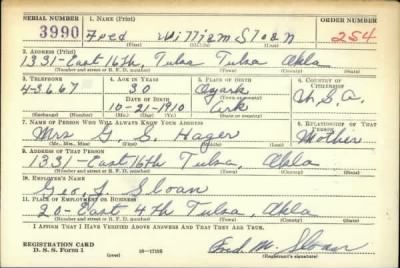 SERIAL NUMBER 1. NAME (Print) ORDER NUMBER
3990 Fred William Sloan 254
(First) (Middle) (Last)
2. ADDRESS (Print)
1331-East 16th, Tulsa Tulsa, Okla
(Number and street or R. F. D. number) (Town) (County) (State)
3. TELEPHONE 4. AGE IN YEARS 5. PLACE OF BIRTH 6. COUNTRY OF CITIZENSHIP
4-3667 30 Ozark U.S.A.
DATE OF BIRTH (Town or county)
10-21-1910 Ark
(Exchange) (Number) (Mo.) (Day) (Yr.) (State or country)
7. NAME OF PERSON WHO WILL ALWAYS KNOW YOUR ADDRESS 8. RELATIONSHIP OF THAT PERSON
Mrs G. S. Hager Mother
(Mr., Mrs., Miss) (First) (Middle) (Last)
9. ADDRESS OF THAT PERSON
1331-East 16th Tulsa, Okla
(Number and street or R. F. D. number) (Town) (County) (State)
10. EMPLOYER'S NAME
Geo. L. Sloan
11. PLACE OF EMPLOYMENT OR BUSINESS
20-East 4th Tulsa, Okla
(Number and street or R. F. D. number) (Town) (County) (State)
I AFFIRM THAT I HAVE VERIFIED ABOVE ANSWERS AND THAT THEY ARE TRUE.
REGISTRATION CARD
D. S. S. Form 1 (over) 16-17105 Fred W. Sloan
(Registrant's signature)